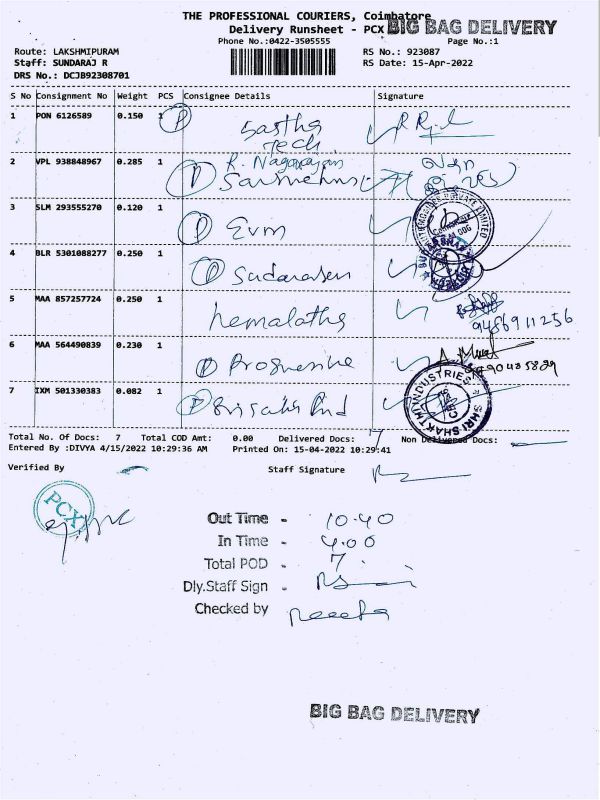 THE PROFESSIONAL COURIERS, Coimbatore
BIG BAG DELIVERY
Delivery Runsheet - PCX
Phone No.:0422-3505555
Page No.:1
Route: LAKSHMIPURAM
RS No.: 923087
Staff: SUNDARAJ R
RS Date: 15-Apr-2022
DRS No.: DCJB92308701
S No Consignment No Weight PCS Consignee Details Signature
1 PON 6126589 0.150 1 P Sastha
Tech
2 VPL 938848967 0.285 1 R. Nagarajan
3 SLM 293555270 0.120 1 Evm
4 BLR 5301088277 0.250 1 Sudarasen
5 MAA 857257724 0.250 1 hemalatha
9486911256
6 MAA 564490839 0.230 1 Progressive
7 IXM 501330383 0.082 1
INDUSTRIES
SHRI SHAKTHI
Total No. Of Docs: 7 Total COD Amt: 0.00 Delivered Docs: 7 Non Delivered Docs:
Entered By :DIVYA 4/15/2022 10:29:36 AM Printed On: 15-04-2022 10:29:41
Verified By Staff Signature
PCX
Out Time - 10.40
In Time - 4.00
Total POD - 7
Dly.Staff Sign -
Checked by
BIG BAG DELIVERY